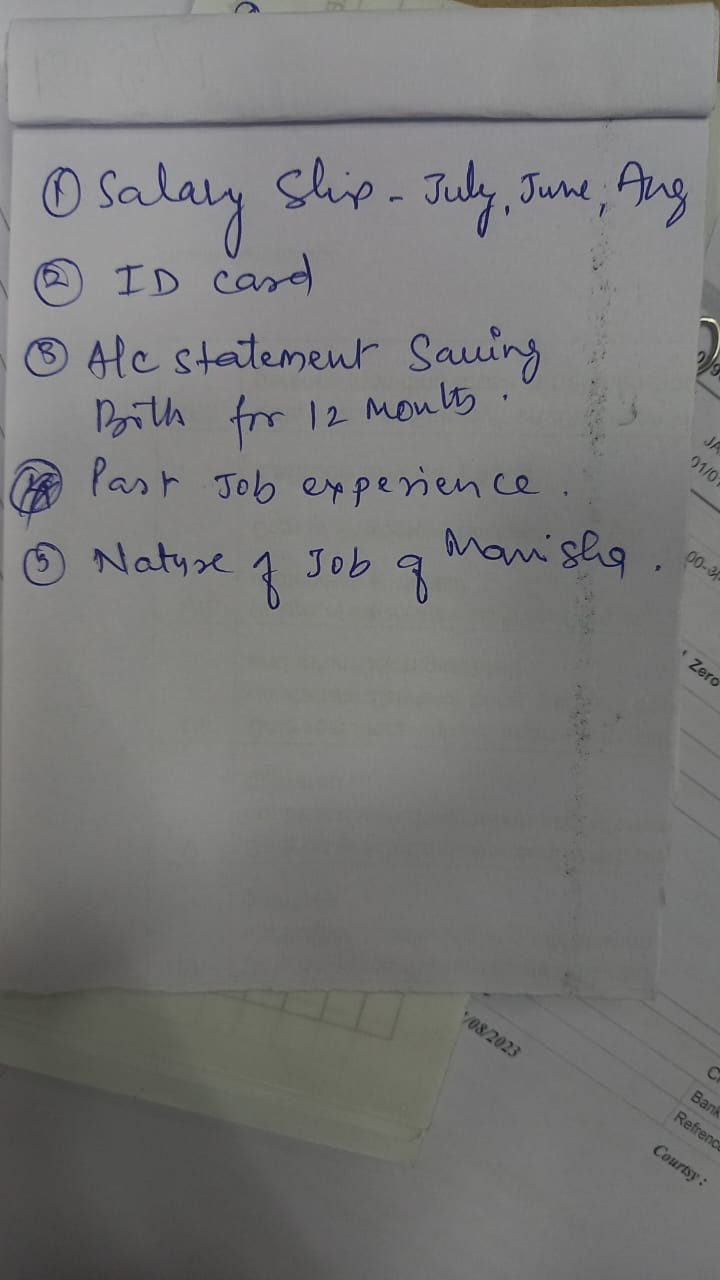 ① Salary Slip - July, June, Aug
② ID card
③ A/c statement Saving
Both for 12 months.
④ Past Job experience.
⑤ Nature of Job of Manisha.
/08/2023
JA
01/0
00-3
Zero
Bank
Refrence
Courtsy :